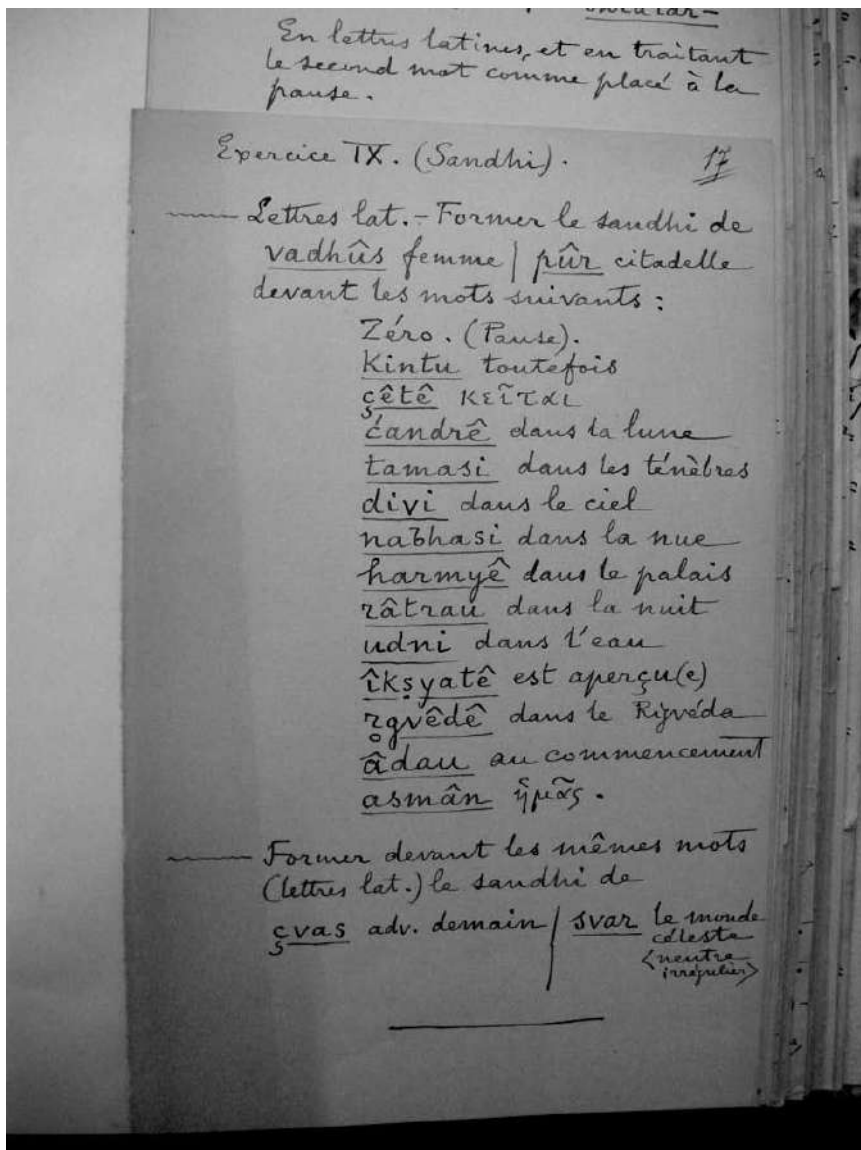 En lettres latines, et en traitant
le second mot comme placé à la
pause.
Exercice IX. (Sandhi). 17
Lettres lat. – Former le sandhi de
vadhûs femme | pûr citadelle
devant les mots suivants :
Zéro. (Pause).
kintu toutefois
çêtê κεῖται
ćandrê dans la lune
tamasi dans les ténèbres
divi dans le ciel
nabhasi dans la nue
harmyê dans le palais
râtrau dans la nuit
udni dans l'eau
îkṣyatê est aperçu(e)
r̥gvêdê dans le Rigvéda
âdau au commencement
asmân ἡμᾶς.
Former devant les mêmes mots
(lettres lat.) le sandhi de
çvas adv. demain | svar le monde
céleste
<neutre
irrégulier>